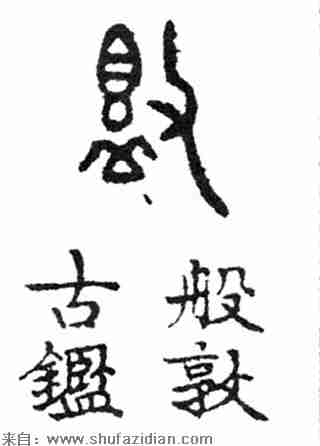 般敦
古鑑
来自：www.shufazidian.com